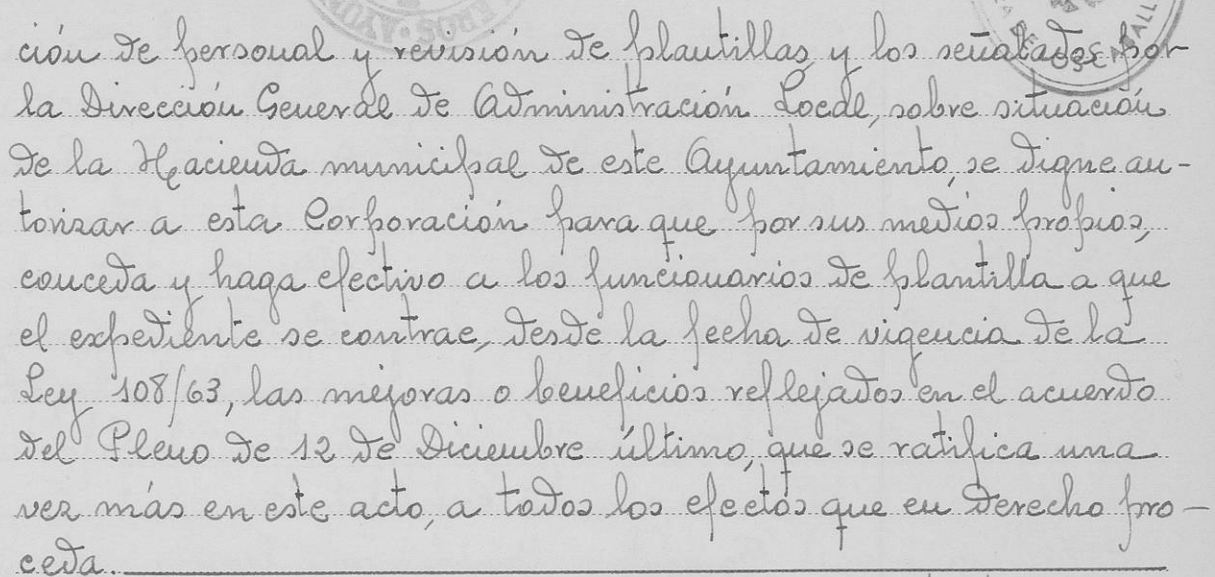 ción de personal y revisión de plantillas y los señalados por
la Dirección General de Administración Local, sobre situación
de la Hacienda municipal de este Ayuntamiento, se digne au-
torizar a esta Corporación para que por sus medios propios,
conceda y haga efectivo a los funcionarios de plantilla a que
el expediente se contrae, desde la fecha de vigencia de la
Ley 108/63, las mejoras o beneficios reflejados en el acuerdo
del Pleno de 12 de Diciembre último, que se ratifica una
vez más en este acto, a todos los efectos que en derecho pro-
ceda.